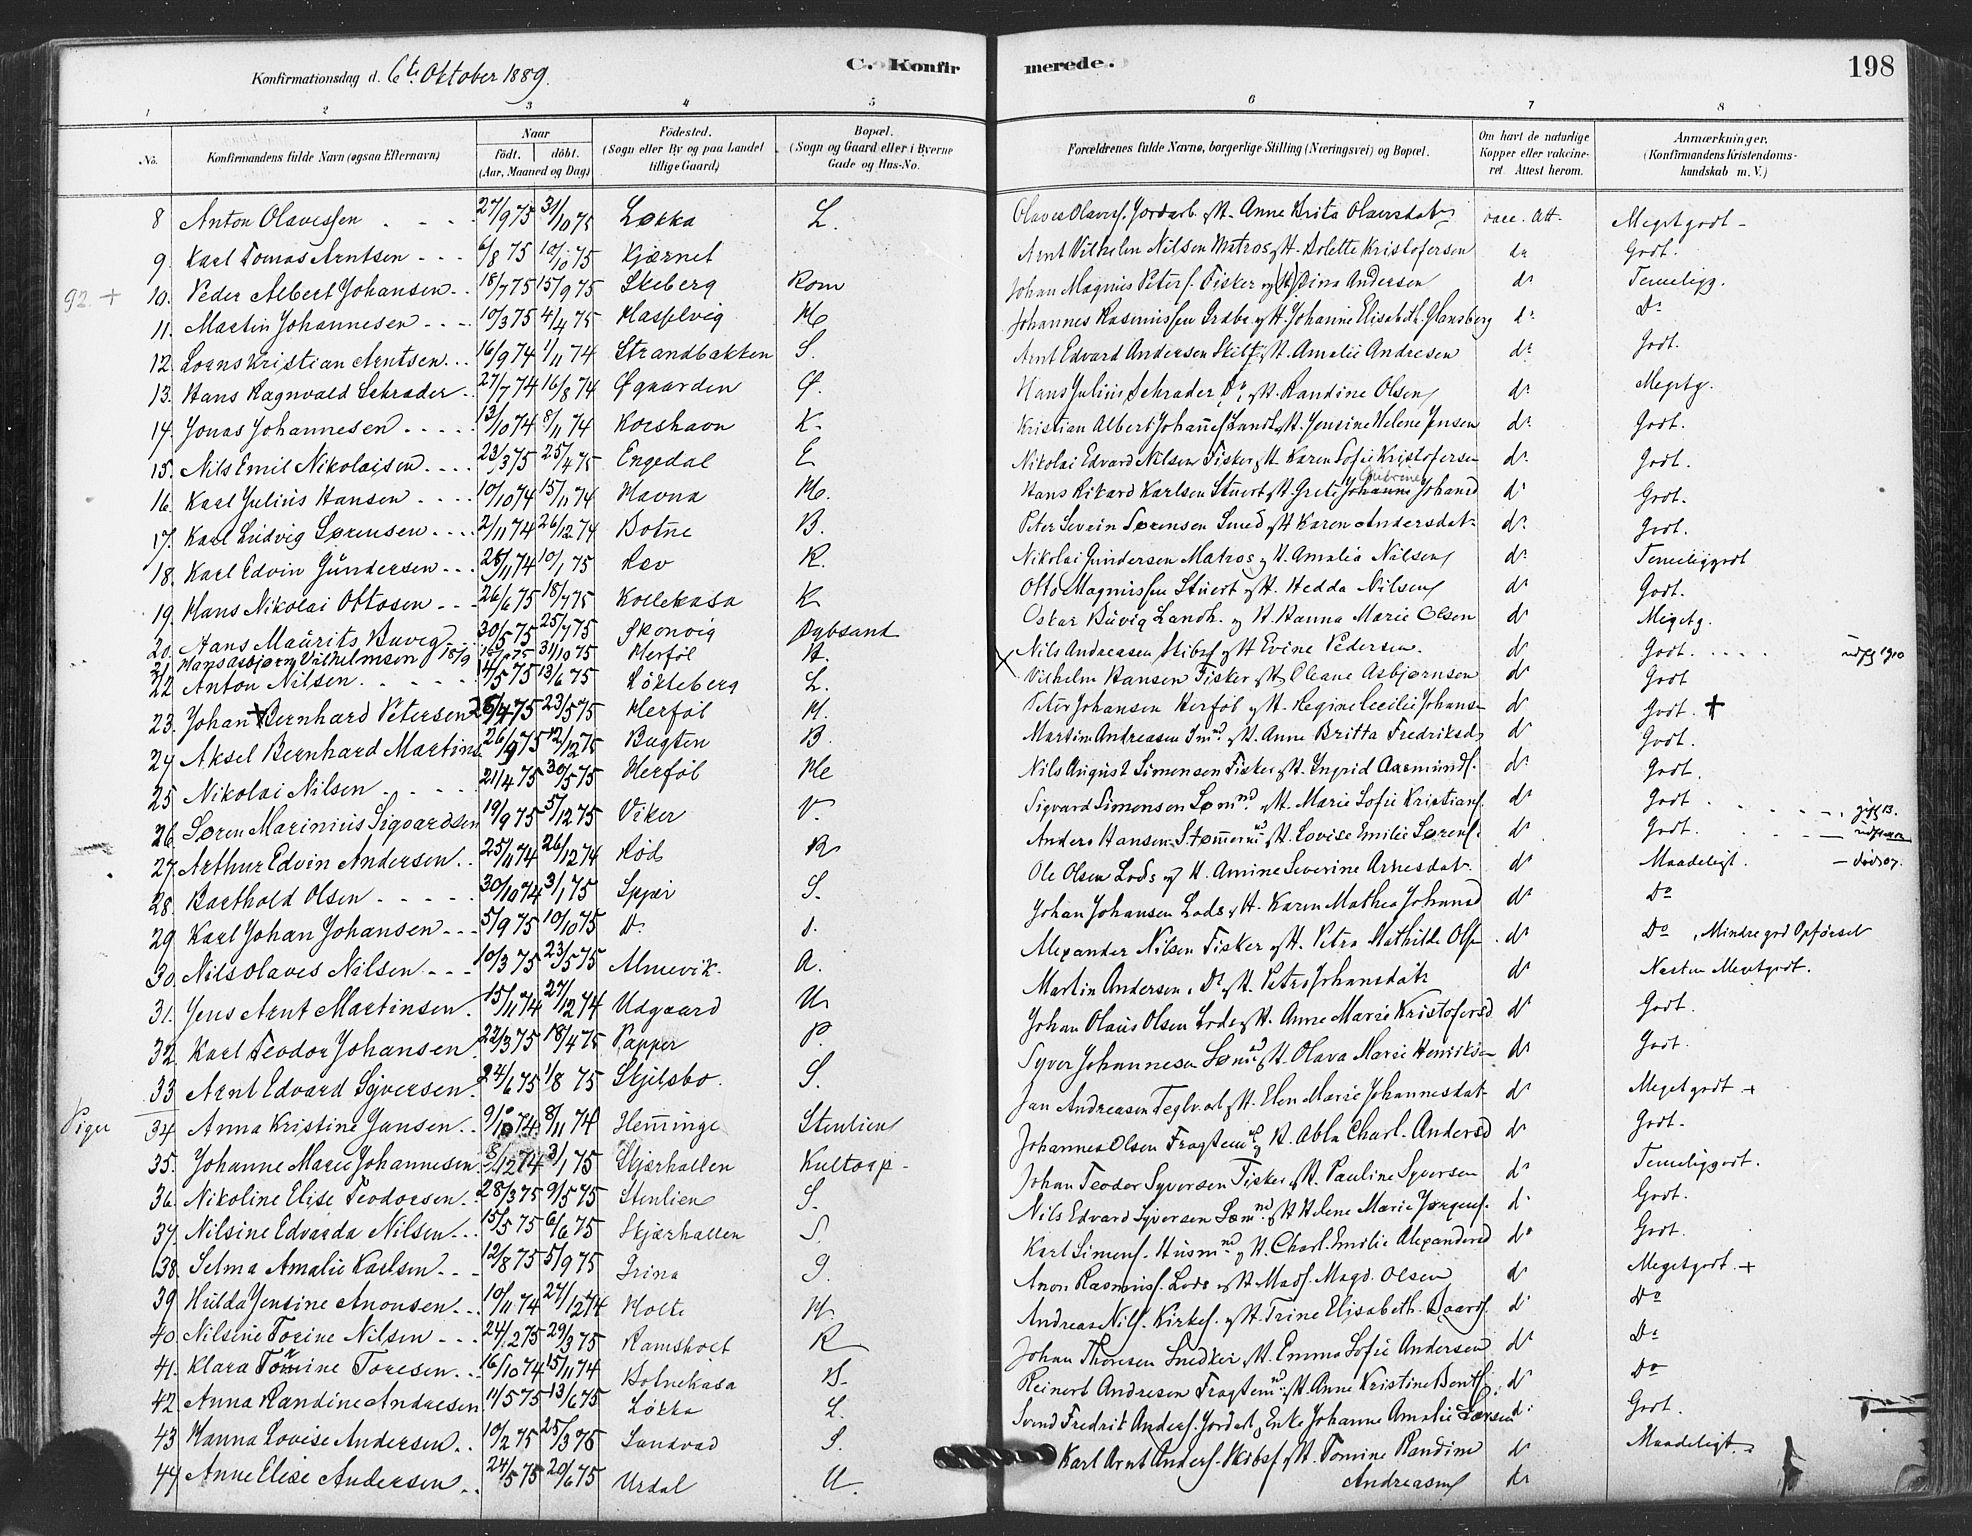 Konfirmationsdag d. 6te Oktober 1889.
C. Konfirmerede.
198
1 2 3 4 5 6 7 8
No. Konfirmandens fulde Navn (ogsaa Efternavn) Naar födt. döbt. (Aar, Maaned og Dag) Födested. (Sogn eller By og paa Landet tillige Gaard) Bopæl. (Sogn og Gaard eller i Byerne Gade og Hus-No. Forældrenes fulde Navne, borgerlige Stilling (Næringsvei) og Bopæl. Om havt de naturlige Kopper eller vakcineret. Attest herom. Anmærkninger. (Konfirmandens Kristendomskundskab m. V.)
8 Anton Olavessen 27/9 75 31/10 75 Løkka L. Olaves Olavesf. Jordarb. og H. Anne Brita Olavesdatr vacc. Att. Megetgodt
9. Karl Tomas Arntsen 6/8 75 10/10 75 Kjærnet Arnt Vilhelm Nilsen Matros og H. Bolette Kristofersen do Godt.
92 + 10. Peder Albert Johansen 18/7 75 15/9 75 Skeberg Rom Johan Magnus Petersf. Fisker og (H) Dina Andersen do Temeligg.
11. Martin Johannesen 10/3 75 4/4 75 Hasselvig H Johannes Rasmussen og H. Johanne Elisabeth do Do
12. Kristian Arntsen 16/9 74 1/11 74 Strandbakken S. Arnt Edvard Andersen Skilf. og H. Amalie Andresen do Godt.
13. Hans Ragnvald Schrader 27/7 74 16/8 74 Øgaarden Ø. Hans Julius Schrader Do og H. Randine Olsen do Megetg.
14. Jonas Johannesen 13/10 74 8/11 74 Korshavn K. Kristian Albert Johanesf. Landh. og H. Jensine Helene Jensen do Godt.
15. Nils Emil Nikolaisen 23/3 75 25/4 75 Engedal E Nikolai Edvard Nilsen Fisker og H. Karen Sofie Kristofersen do Godt.
16. Karl Julius Hansen 10/10 74 15/11 74 Havna H. Hans Rikard Karlsen Stuert og H. Grete Johanne Johansd do Godt.
17. Karl Ludvig Sørensen 2/11 74 26/12 74 Botne B. Peter Severin Sørensen Smed og H. Karen Andersdatr do Godt.
18. Karl Edvin Gundersen 28/11 74 10/1 75 Rev R. Nikolai Gundersen Matros og H. Amalia Nilsen do Temeliggodt
19. Hans Nikolai Ottosen 26/6 75 18/7 75 Kollekasa K Otto Magnussen Stuert og H. Hedda Nilsen do Godt.
20. Hans Maurits Buvig 30/5 75 25/7 75 Skonvig Dybsant Oskar Buvig Landh. og H. Hanna Marie Olsen do Megetg.
21. Hans Asbjørn Vilhelmsen 18/9 75 31/10 75 Herføl H. Nils Andreasen Skibsf. og H. Evine Pedersen. do Godt. udfl 1910
22 Anton Nilsen 14/5 75 13/6 75 Løkteberg L. Vilhelm Hansen Fisker og H. Oleane Asbjørnsen do Godt
23. Johan Bernhard Petersen 25/4 75 23/5 75 Herføl H. Peter Johansen Herføl og H. Regine Cecilie Johans do Godt. +
24 Aksel Bernhard Martins 26/9 75 12/12 75 Bugten B. Martin Andreasen Smd. og H. Anne Britta Fredriksd do Godt.
25 Nikolai Nilsen 21/4 75 30/5 75 Herføl He Nils August Simensen Fisker og H. Ingrid Aasmundsf. do Godt.
26 Søren Marinius Sigvardsen 19/9 75 5/12 75 Viker V. Sigvard Simensen Sømnd og H. Marie Sofie Kristiansf. do Godt
27. Arthur Edvin Andersen 25/11 74 26/12 74 Rød R Anders Hansen Tømmermd og H. Lovise Emilie Sørens. do Godt.
28. Barthold Olsen 30/10 74 3/1 75 Spjær S. Ole Olsen Lods og H. Amine Severine Arnesdatr do Maadeligt. død 07.
29 Karl Johan Johansen 5/9 75 10/10 75 Do S. Johan Johansen Lods og H. Karen Mathea Johansd do Do
30. Nils Olaves Nilsen 10/3 75 23/5 75 Almevik A. Alexander Nilsen Fisker og H. Petra Mathilde Ols do Do, Mindre god Opførsel
31. Jens Arnt Martinsen 15/11 74 27/12 74 Udgaard U Martin Andersen, Do og H. Petra Johansdatr do Næsten Megetgodt.
32 Karl Teodor Johansen 22/3 75 18/4 75 Papper P. Johan Olaus Olsen Lods og H. Anne Marie Kristofersd do Godt.
33 Arnt Edvard Syversen 24/6 75 1/8 75 Skjelsbo. S. Syver Johannesen Sømnd og H. Olava Marie Henriksen do Godt.
Piger 34 Anna Kristine Jansen 9/10 74 8/11 74 Heminge Stenlien Jan Andreasen Teglv.arb og H. Elen Marie Johannesdat do Megetgodt +
35. Johanne Marie Johannesen 8/12 74 3/1 75 Skjærhallen Kultorp Johannes Olsen Fragtemd og H. Abla Charl. Andersd do Godt.
36. Nikoline Elise Teodorsen 28/3 75 9/5 75 Stenlien S. Johan Teodor Syversen Fisker og H. Pauline Syversen do Temeliggodt.
37. Nilsine Edvarda Nilsen 15/5 75 6/6 75 Skjærhallen S. Nils Edvard Syversen Sømnd og H. Helene Marie Jørgensf. do Godt.
38. Selma Amalie Karlsen 12/8 75 5/9 75 Grina G. Karl Simensf. Husmnd og H. Charl. Emilie Alexandersd do Godt.
39 Hulda Jensine Anonsen 10/11 74 27/12 74 Holte H. Anon Rasmusf. Lods og H. Mads. Magd. Olsen do Megetgodt +
40 Nilsine Torine Nilsen 24/1 75 29/3 75 Ramsholt R Andreas Nilsf. Kirkes. og H. Trine Elisabeth. Baards. do Do
41. Klara Tomine Toresen 16/10 74 15/11 74 Botnekasa B. Johan Thoresen Snedker og H. Emma Sofie Andersen do Do
42 Anna Randine Andresen 11/5 75 13/6 75 Løkka L. Reinert Andresen Fragtemd og H. Anne Kristine Bentsf. do Do
43 Hanna Lovise Andersen 10/2 75 25/3 75 Sandvad S. Svend Fredrik Andersf. Jordat. Enke Johanne Amalie Larsen do Godt.
44 Anne Elise Andersen 24/5 75 20/6 75 Urdal U. Karl Arnt Andersf. Skibsf. og H. Tomine Randine Andreasen do Maadeligt.